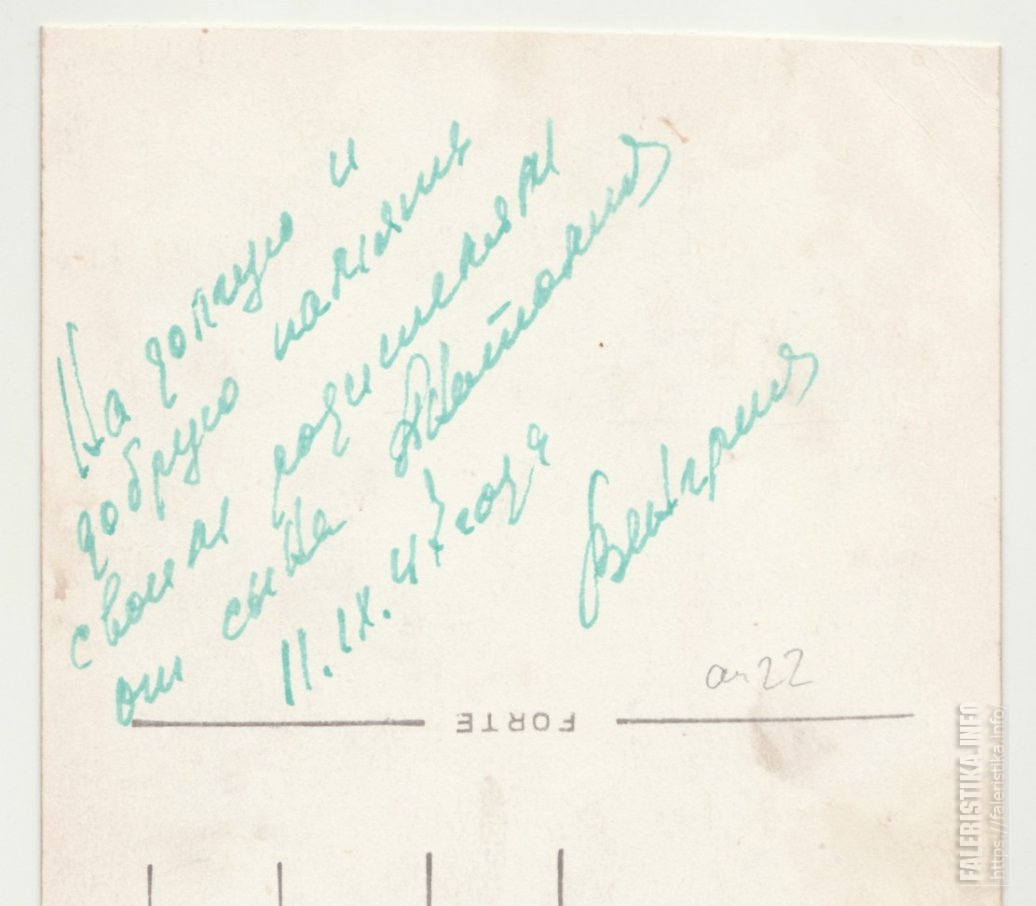 На долгую и
добрую память
своим родителям
от сына Анатолия
11.IX.47 года
Венгрия
ан 22
FORTE
FALERISTIKA.INFO
https://faleristika.info